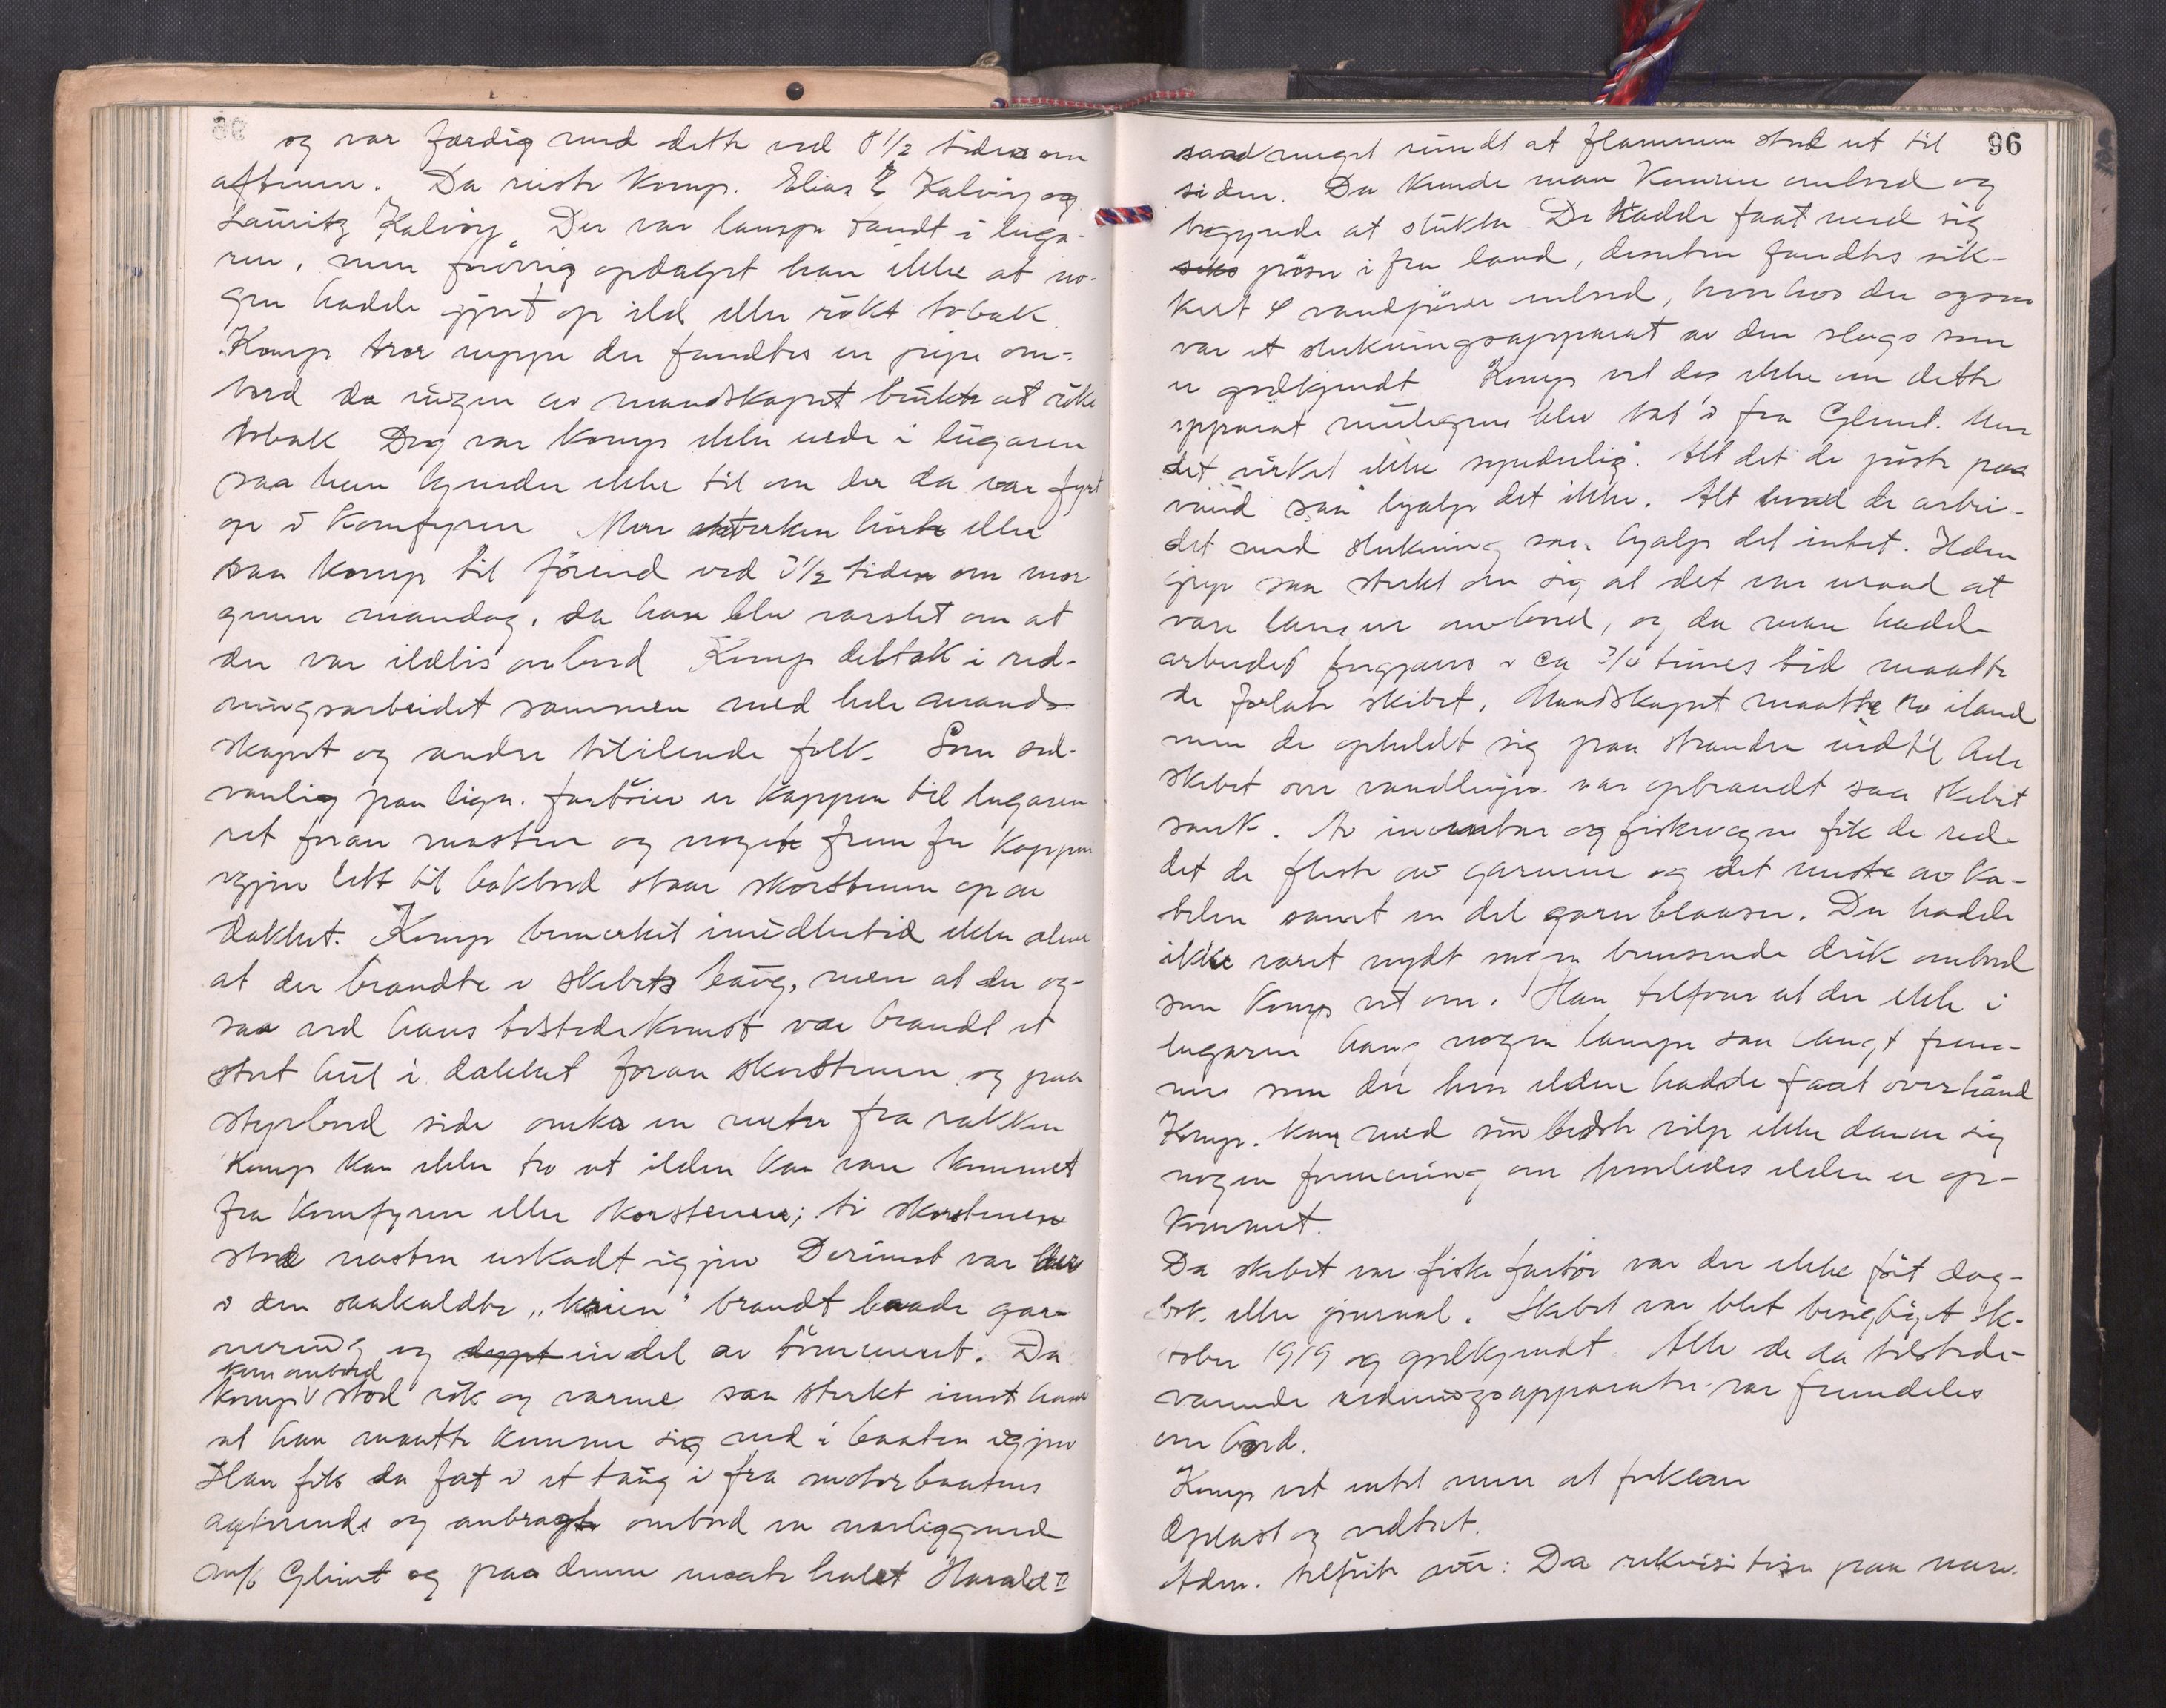 og var færdig med dette ved 8 1/2 tiden om
aftenen. Da reiste Komp. Elias E Kalvøy og
Lauritz Kalvøy. Der var lampe tændt i luga-
ren, men forøvrig opdaget han ikke at no-
gen hadde gjort op ild eller røkt tobak.
Komp tror neppe der fandtes en pipe om-
bord da ingen av mandskapet brukte at røke
tobak Dog var komp ikke nede i lugaren
saa han kjender ikke til om der da var fyrt
op i komfyren Mere hverken hørte eller
saa komp til førend ved 3 1/2 tiden om mor
genen mandag, da han blev varslet om at
der var ildløs ombord Komp deltok i red-
ningsarbeidet sammen med hele mand-
skapet og andre tililende folk. Som sed-
vanlig paa lign. fartøier er kappen til lugaren
ret foran masten og noget frem for kappen
igjen litt til bakbord staar skorstenen op av
dækket. Komp bemerket imidlertid ikke alene
at der brandte i skibets baug, men at der og-
saa ved hans tilstedekomst var brandt et
stort hul i dækket foran skorstenen og paa
styrbord side omkr en meter fra rækken
Komp kan ikke tro at ilden kan være kommet
fra komfyren eller skorstenen; ti skorstenen
stod næsten uskadt igjen Derimot var der
i den saakaldte „kaien" brandt baade gar-
nering og dypt en del av tømmeret. Da
kom ombord
komp stod røk og varme saa sterkt imot ham
at han maatte komme sig ned i baaten igjen
Han fik da fat i et taug i fra motorbaatens
agterende og anbragte ombord en nærliggende
m/k Glimt og paa denne maate halet Harald II
96
saad meget rundt at flammen stod ut til
siden. Da kunde man komme ombord og
begynde at slukke De hadde faat med sig
seks pøser i fra land, desuten fandtes sik-
kert 4 vandpøser ombord, hvorhos der ogsaa
var et slukningsapparat av den slags som
er godkjendt Komp vet dog ikke om dette
apparat muligens blev tat i fra Glimt. Men
det virket ikke synderlig. Alt det de pøste paa
vand saa hjalp det ikke. Alt hvad de arbei-
det med slukning saa hjalp det intet. Ilden
grep saa sterkt om sig at det var uraad at
være længer ombord, og da man hadde
arbeidet forgjæves i ca 3/4 times tid maatte
de forlate skibet. Mandskapet maatte ro iland
men de opholdt sig paa stranden indtil hele
skibet over vandlinjen var opbrændt saa skibet
sank. Av inventar og fiskevegn fik de red-
det de fleste av garnene og det meste av ka-
belen samt en del garnblaaser. Der hadde
ikke været nydt nogen berusende drik ombord
som komp vet om. Han tilføier at der ikke i
lugaren hang nogen lampe saa langt frem-
me som der hvor ilden hadde faat overhaand
Komp. kan med sin bedste vilje ikke danne sig
nogen formening om hvorledes ilden er op-
kommet.
Da skibet var fiskefartøi var der ikke ført dag-
bok eller journal. Skibet var blit besigtiget ok-
tober 1919 og godkjendt Alle de da tilstede-
værende redningsapparater var fremdeles
om bord.
Komp vet intet mere at forklare
Oplæst og vedtat.
Adm. tilførte sin: Da rekvisitisjon paa nær-